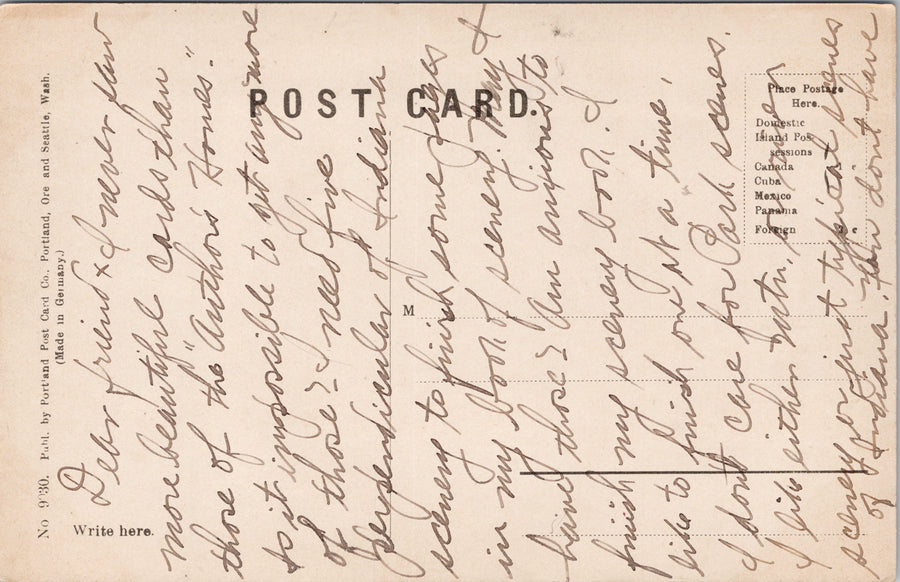 POST CARD.
No 9030. Publ. by Portland Post Card Co., Portland, Ore and Seattle, Wash.
(Made in Germany.)
Write here.
M
Place Postage
Here.
Domestic
Island Pos-
sessions
Canada
Cuba
Mexico
Panama
Foreign
Dear friend & I never saw
more beautiful cards than
those of the "Author's Homes."
Is it impossible to get any more
of those? I need five
perpendicular of Indiana
scenery to finish some pages
in my book of scenery. May I
have those? Am anxious to
finish my scenery book. I
like to finish one at a time.
I don't care for Park scenes.
I like either mtn,
scenery or just typical scenes
of Indiana. You don't have